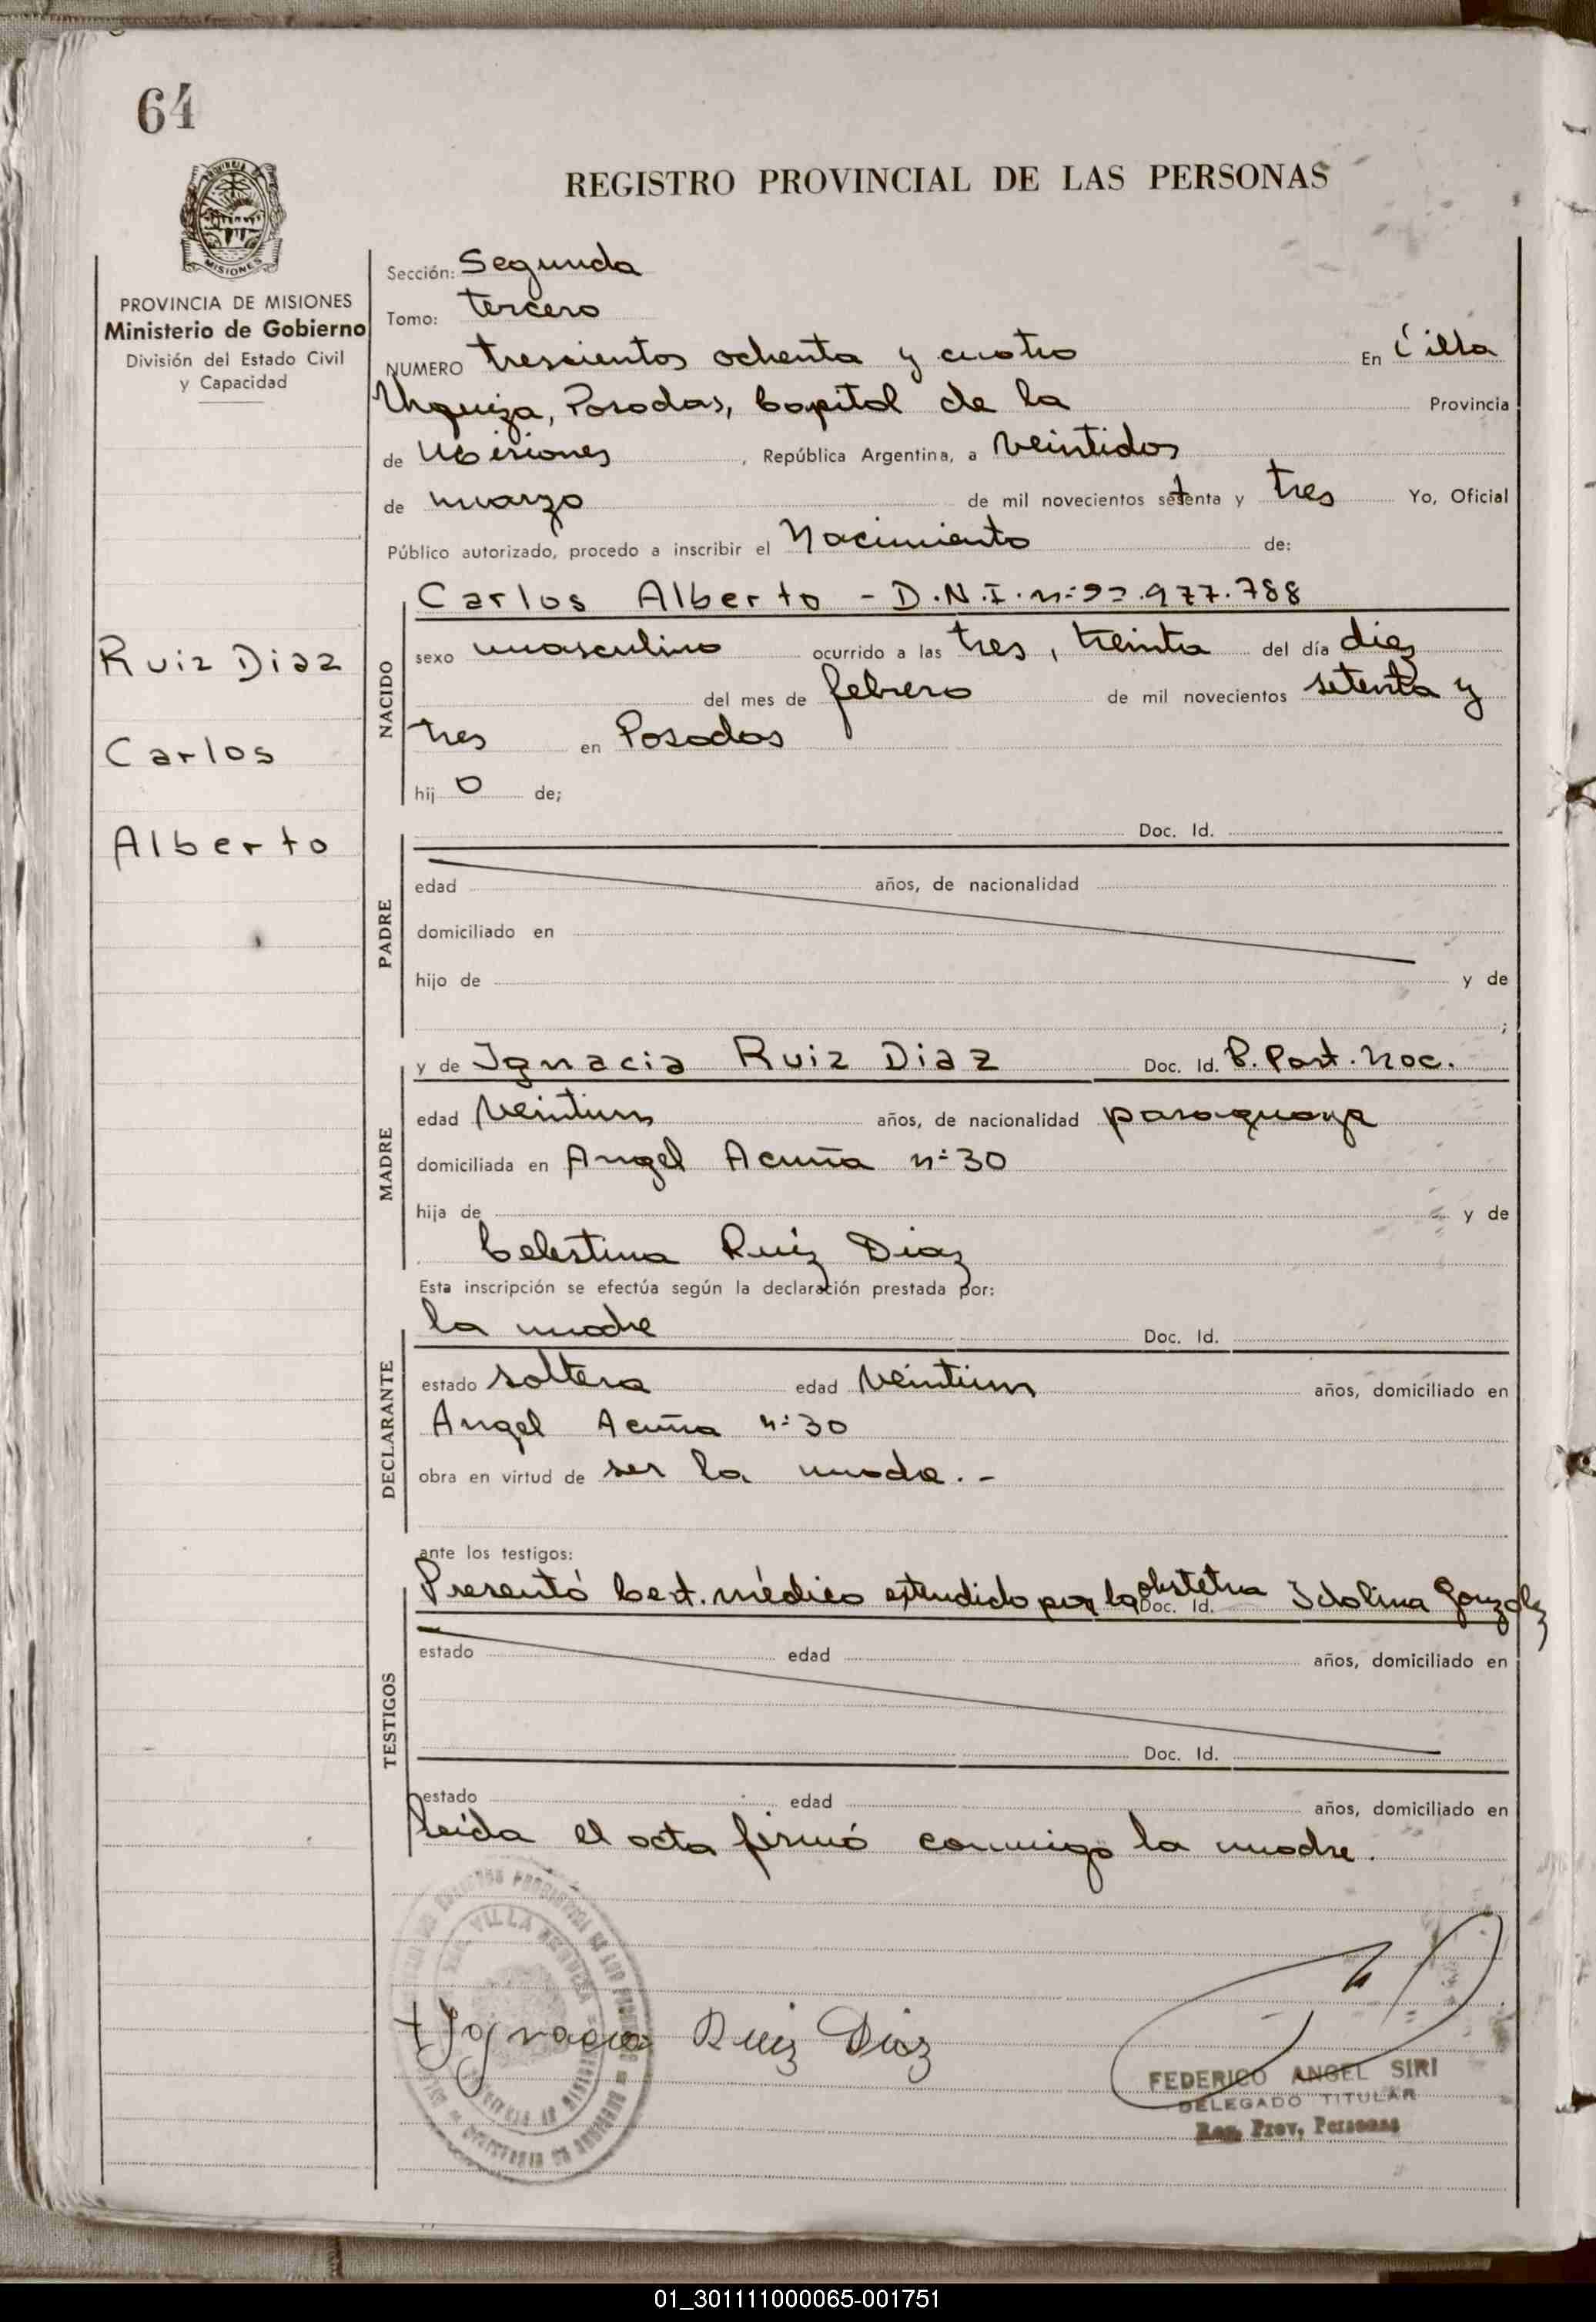 64
REGISTRO PROVINCIAL DE LAS PERSONAS
MISIONES
PROVINCIA DE MISIONES
Ministerio de Gobierno
División del Estado Civil
y Capacidad
Ruiz Diaz
Carlos
Alberto
Sección: Segunda
Tomo: tercero
NUMERO trescientos ochenta y cuatro En Villa
Urquiza, Posadas, Capital de la Provincia
de Misiones, República Argentina, a veintidos
de marzo de mil novecientos setenta y tres Yo, Oficial
Público autorizado, procedo a inscribir el Nacimiento de:
NACIDO
Carlos Alberto - D.N.I. n:
sexo masculino ocurrido a las tres, treinta del día diez
del mes de febrero de mil novecientos setenta y
tres en Posadas
hij o de;
PADRE
Doc. Id.
edad años, de nacionalidad
domiciliado en
hijo de y de
;
MADRE
y de Ignacia Ruiz Diaz Doc. Id. C. Part. Nac.
edad veintiun años, de nacionalidad paraguaya
domiciliada en Angel Acuña n: 30
hija de y de
Celestina Ruiz Diaz
Esta inscripción se efectúa según la declaración prestada por:
DECLARANTE
la madre Doc. Id.
estado soltera edad veintiun años, domiciliado en
Angel Acuña n: 30
obra en virtud de ser la madre. -
ante los testigos:
TESTIGOS
Presentó Cert. médico extendido por la obstetra Doc. Id. Idolina Gonzalez
estado edad años, domiciliado en
Doc. Id.
estado edad años, domiciliado en
leída el acta firmó conmigo la madre.
VILLA URQUIZA
Ignacia Ruiz Diaz
FEDERICO ANGEL SIRI
DELEGADO TITULAR
Reg. Prov. Personas
01_301111000065-001751